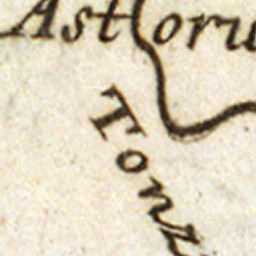 Astoru
Tonk